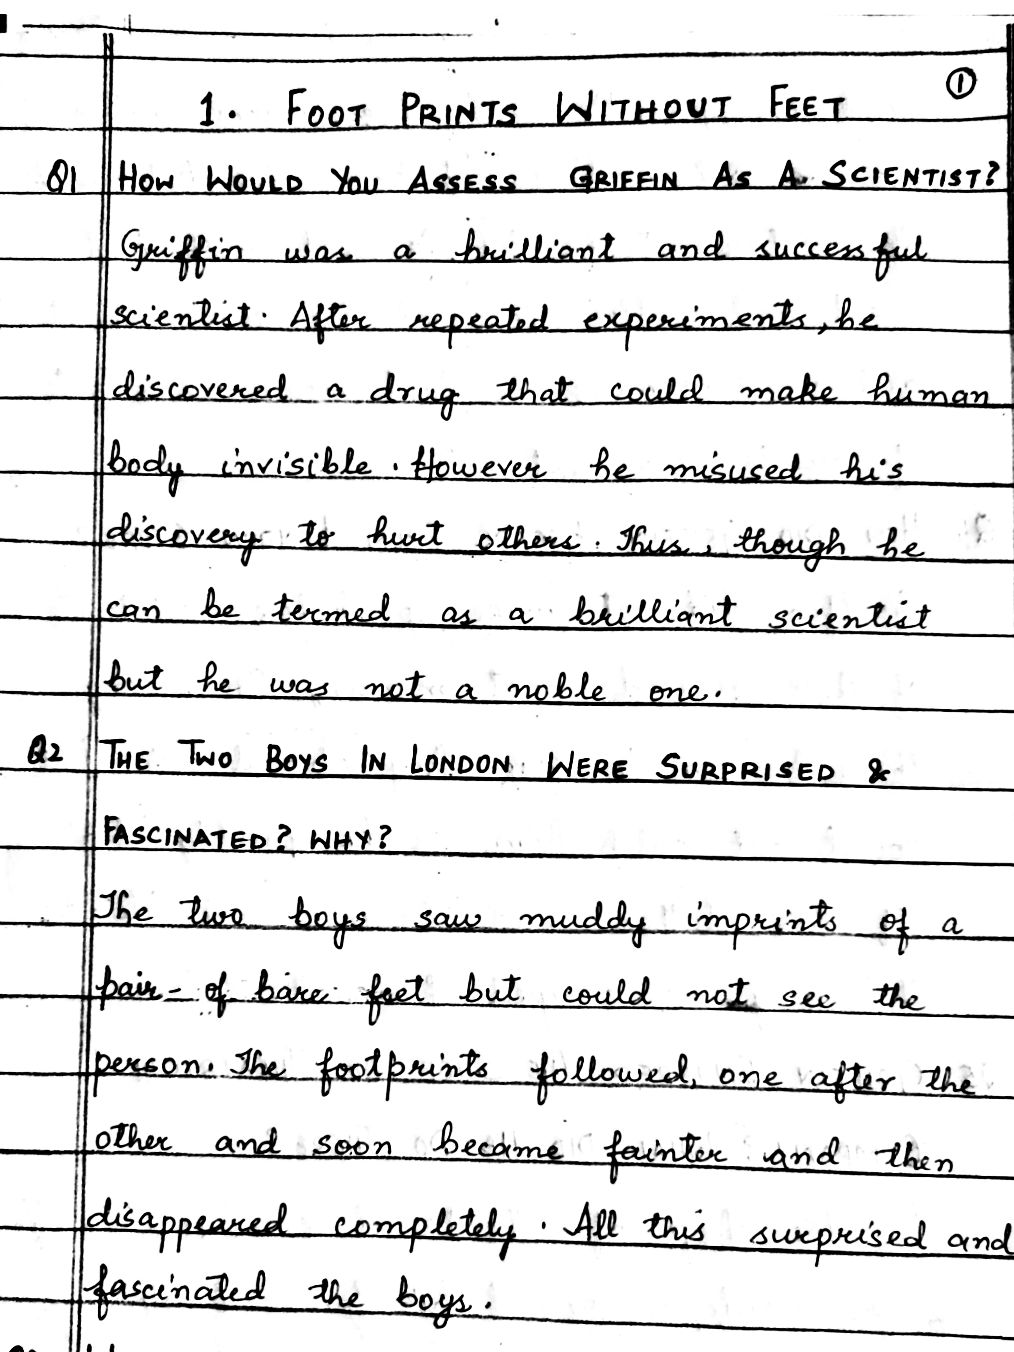 ①
1. FOOT PRINTS WITHOUT FEET
Q1 HOW WOULD YOU ASSESS GRIFFIN AS A SCIENTIST?
Griffin was a brilliant and successful
scientist. After repeated experiments, he
discovered a drug that could make human
body invisible. However he misused his
discovery to hurt others. Thus, though he
can be termed as a brilliant scientist
but he was not a noble one.
Q2 THE TWO BOYS IN LONDON WERE SURPRISED &
FASCINATED? WHY?
The two boys saw muddy imprints of a
pair- of bare feet but could not see the
person. The footprints followed, one after the
other and soon became fainter and then
disappeared completely. All this surprised and
fascinated the boys.